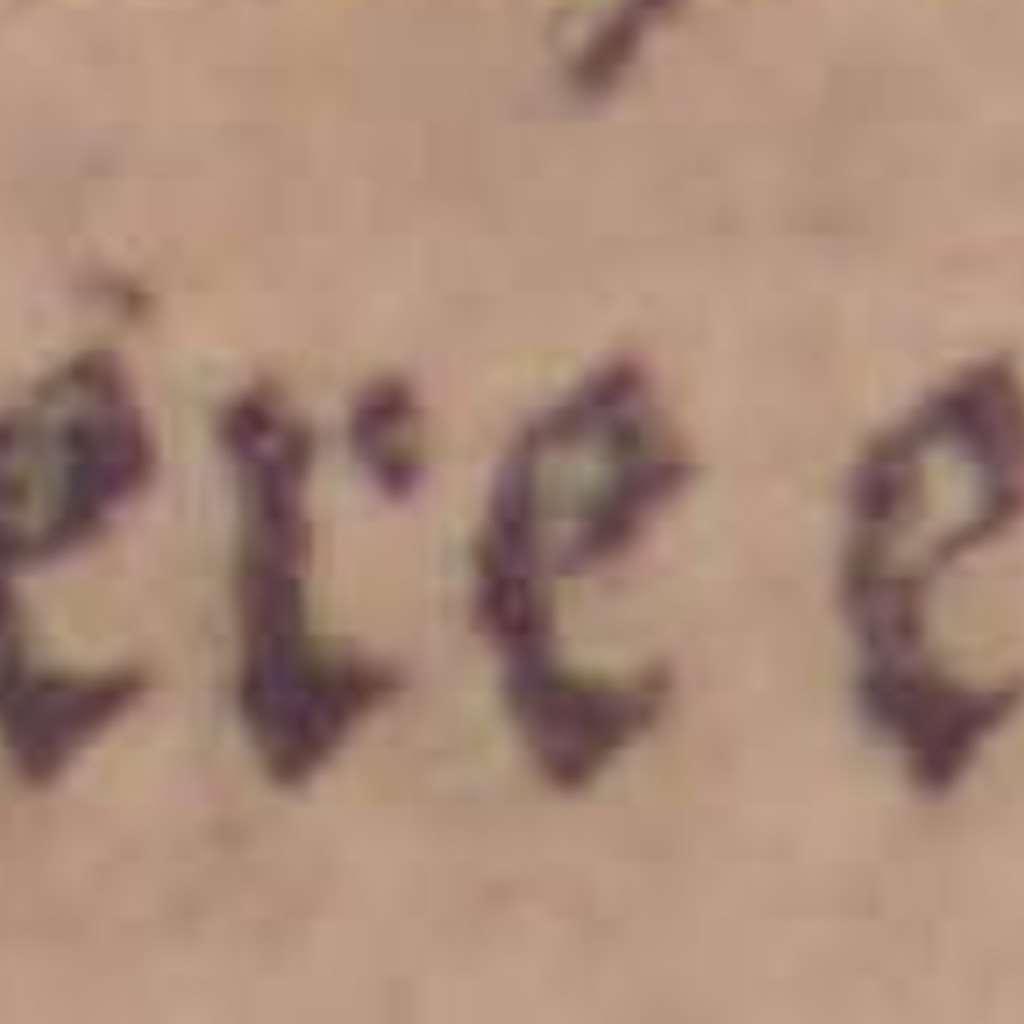 ere e